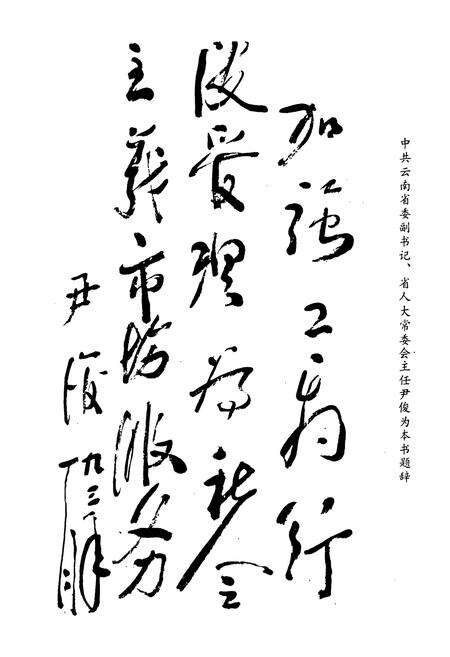 中共云南省委副书记、省人大常委会主任尹俊为本书题辞
加强工商行
政管理为社会
主义市场服务
尹俊
九三年